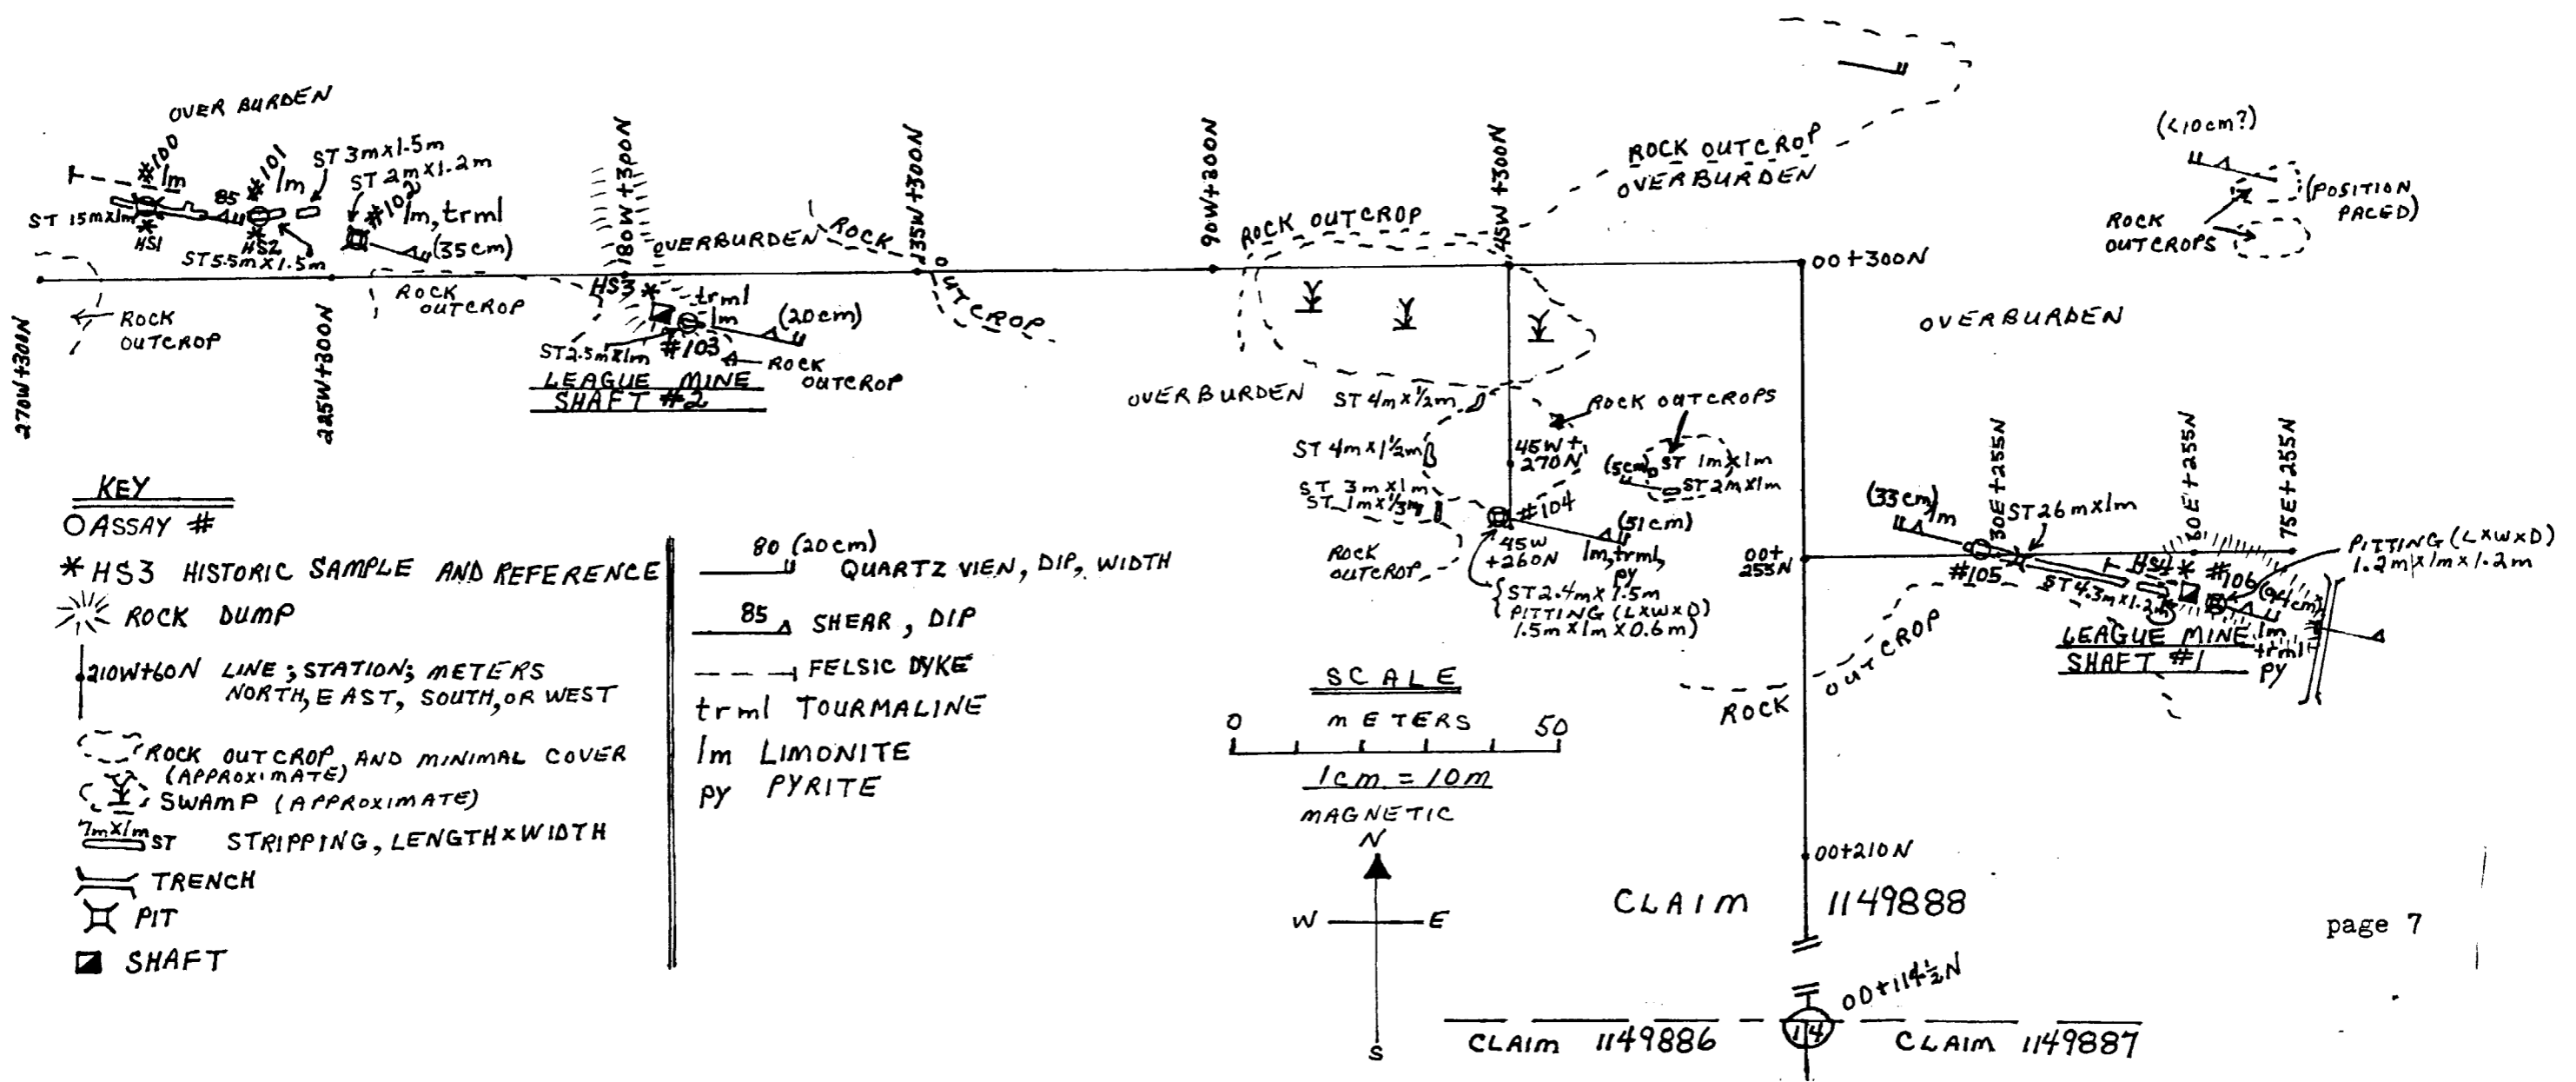 OVER BURDEN
#100
lm
#101
lm
ST 3m×1.5m
ST 2m×1.2m
#102
lm, trml
85
ST 15m×1m
HS1
HS2
ST 5.5m×1.5m
(35cm)
270W+300N
ROCK
OUTCROP
225W+300N
ROCK
OUTCROP
180W+300N
OVERBURDEN
HS3
trml
lm
(20cm)
ST 2.5m×1m
#103
ROCK
OUTCROP
LEAGUE MINE
SHAFT #2
ROCK
OUTCROP
135W+300N
90W+300N
ROCK OUTCROP
45W+300N
ROCK OUTCROP
OVERBURDEN
00+300N
(<10cm?)
(POSITION
PACED)
ROCK
OUTCROPS
OVERBURDEN
OVERBURDEN
ST 4m×1/2m
ROCK OUTCROPS
ST 4m×1 1/2m
45W+
270N
(5cm)
ST 1m×1m
ST 2m×1m
ST 3m×1m
ST 1m×1/3m
#104
(51cm)
ROCK
OUTCROP
45W
+260N
lm, trml,
py
{ST 2.4m×1.5m
{PITTING (L×W×D)
1.5m×1m×0.6m)
00+
255N
(33cm)
lm
30E+255N
ST 26m×1m
60E+255N
75E+255N
#105
HS4
#106
(94cm)
PITTING (L×W×D)
1.2m×1m×1.2m
ST 4.3m×1.2m
LEAGUE MINE
SHAFT #1
lm
trml
py
ROCK
OUTCROP
KEY
O ASSAY #
* HS3 HISTORIC SAMPLE AND REFERENCE
ROCK DUMP
210W+60N LINE; STATION; METERS
NORTH, EAST, SOUTH, OR WEST
ROCK OUTCROP, AND MINIMAL COVER
(APPROXIMATE)
SWAMP (APPROXIMATE)
7m×1m
ST STRIPPING, LENGTH×WIDTH
TRENCH
PIT
SHAFT
80 (20cm)
QUARTZ VIEN, DIP, WIDTH
85
SHEAR, DIP
FELSIC DYKE
trml TOURMALINE
lm LIMONITE
py PYRITE
SCALE
METERS
0 50
1cm = 10m
MAGNETIC
N
W E
S
00+210N
CLAIM 1149888
page 7
00+114½N
14
CLAIM 1149886
CLAIM 1149887